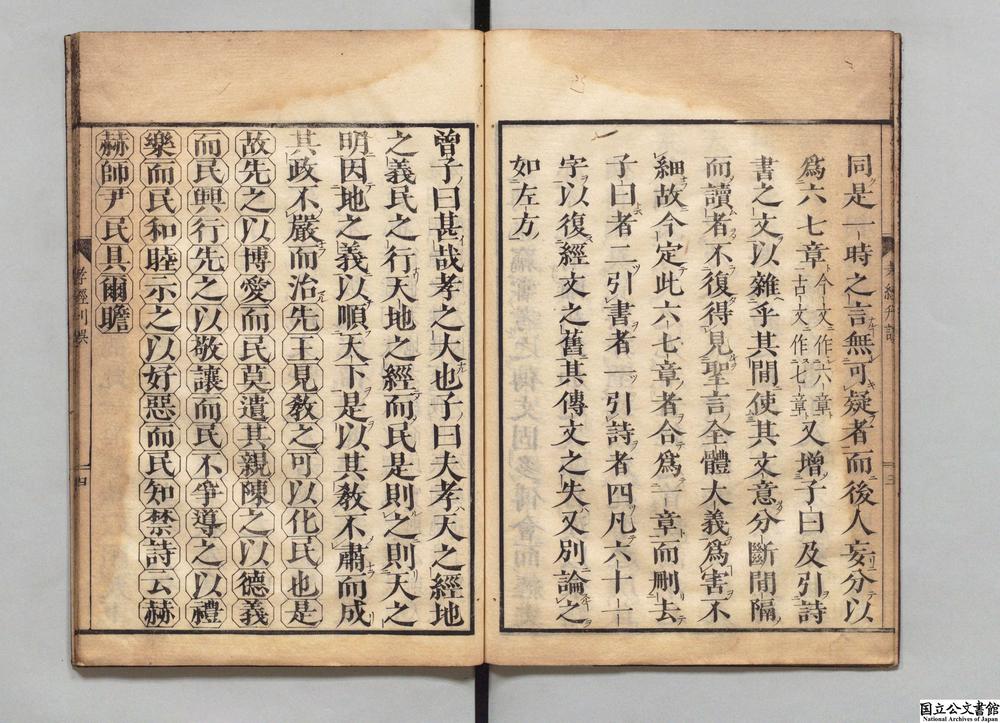 同是一時之言無可疑者而後人妄分以
爲六七章今文作六章古文作七章又增子曰及引詩
書之文以雜乎其間使其文意分斷間隔
而讀者不復得見聖言全體大義爲害不
細故今定此六七章者合爲一章而刪去
子曰者二引書者一引詩者四凡六十一
字以復經文之舊其傳文之失又別論之
如左方
孝經刊誤
三
曾子曰甚哉孝之大也子曰夫孝天之經地
之義民之行天地之經而民是則之則天之
明因地之義以順天下是以其教不肅而成
其政不嚴而治先王見教之可以化民也是
故先之以博愛而民莫遺其親陳之以德義
而民興行先之以敬讓而民不爭導之以禮
樂而民和睦示之以好惡而民知禁詩云赫
赫師尹民具爾瞻
孝經刊誤
四
国立公文書館
National Archives of Japan